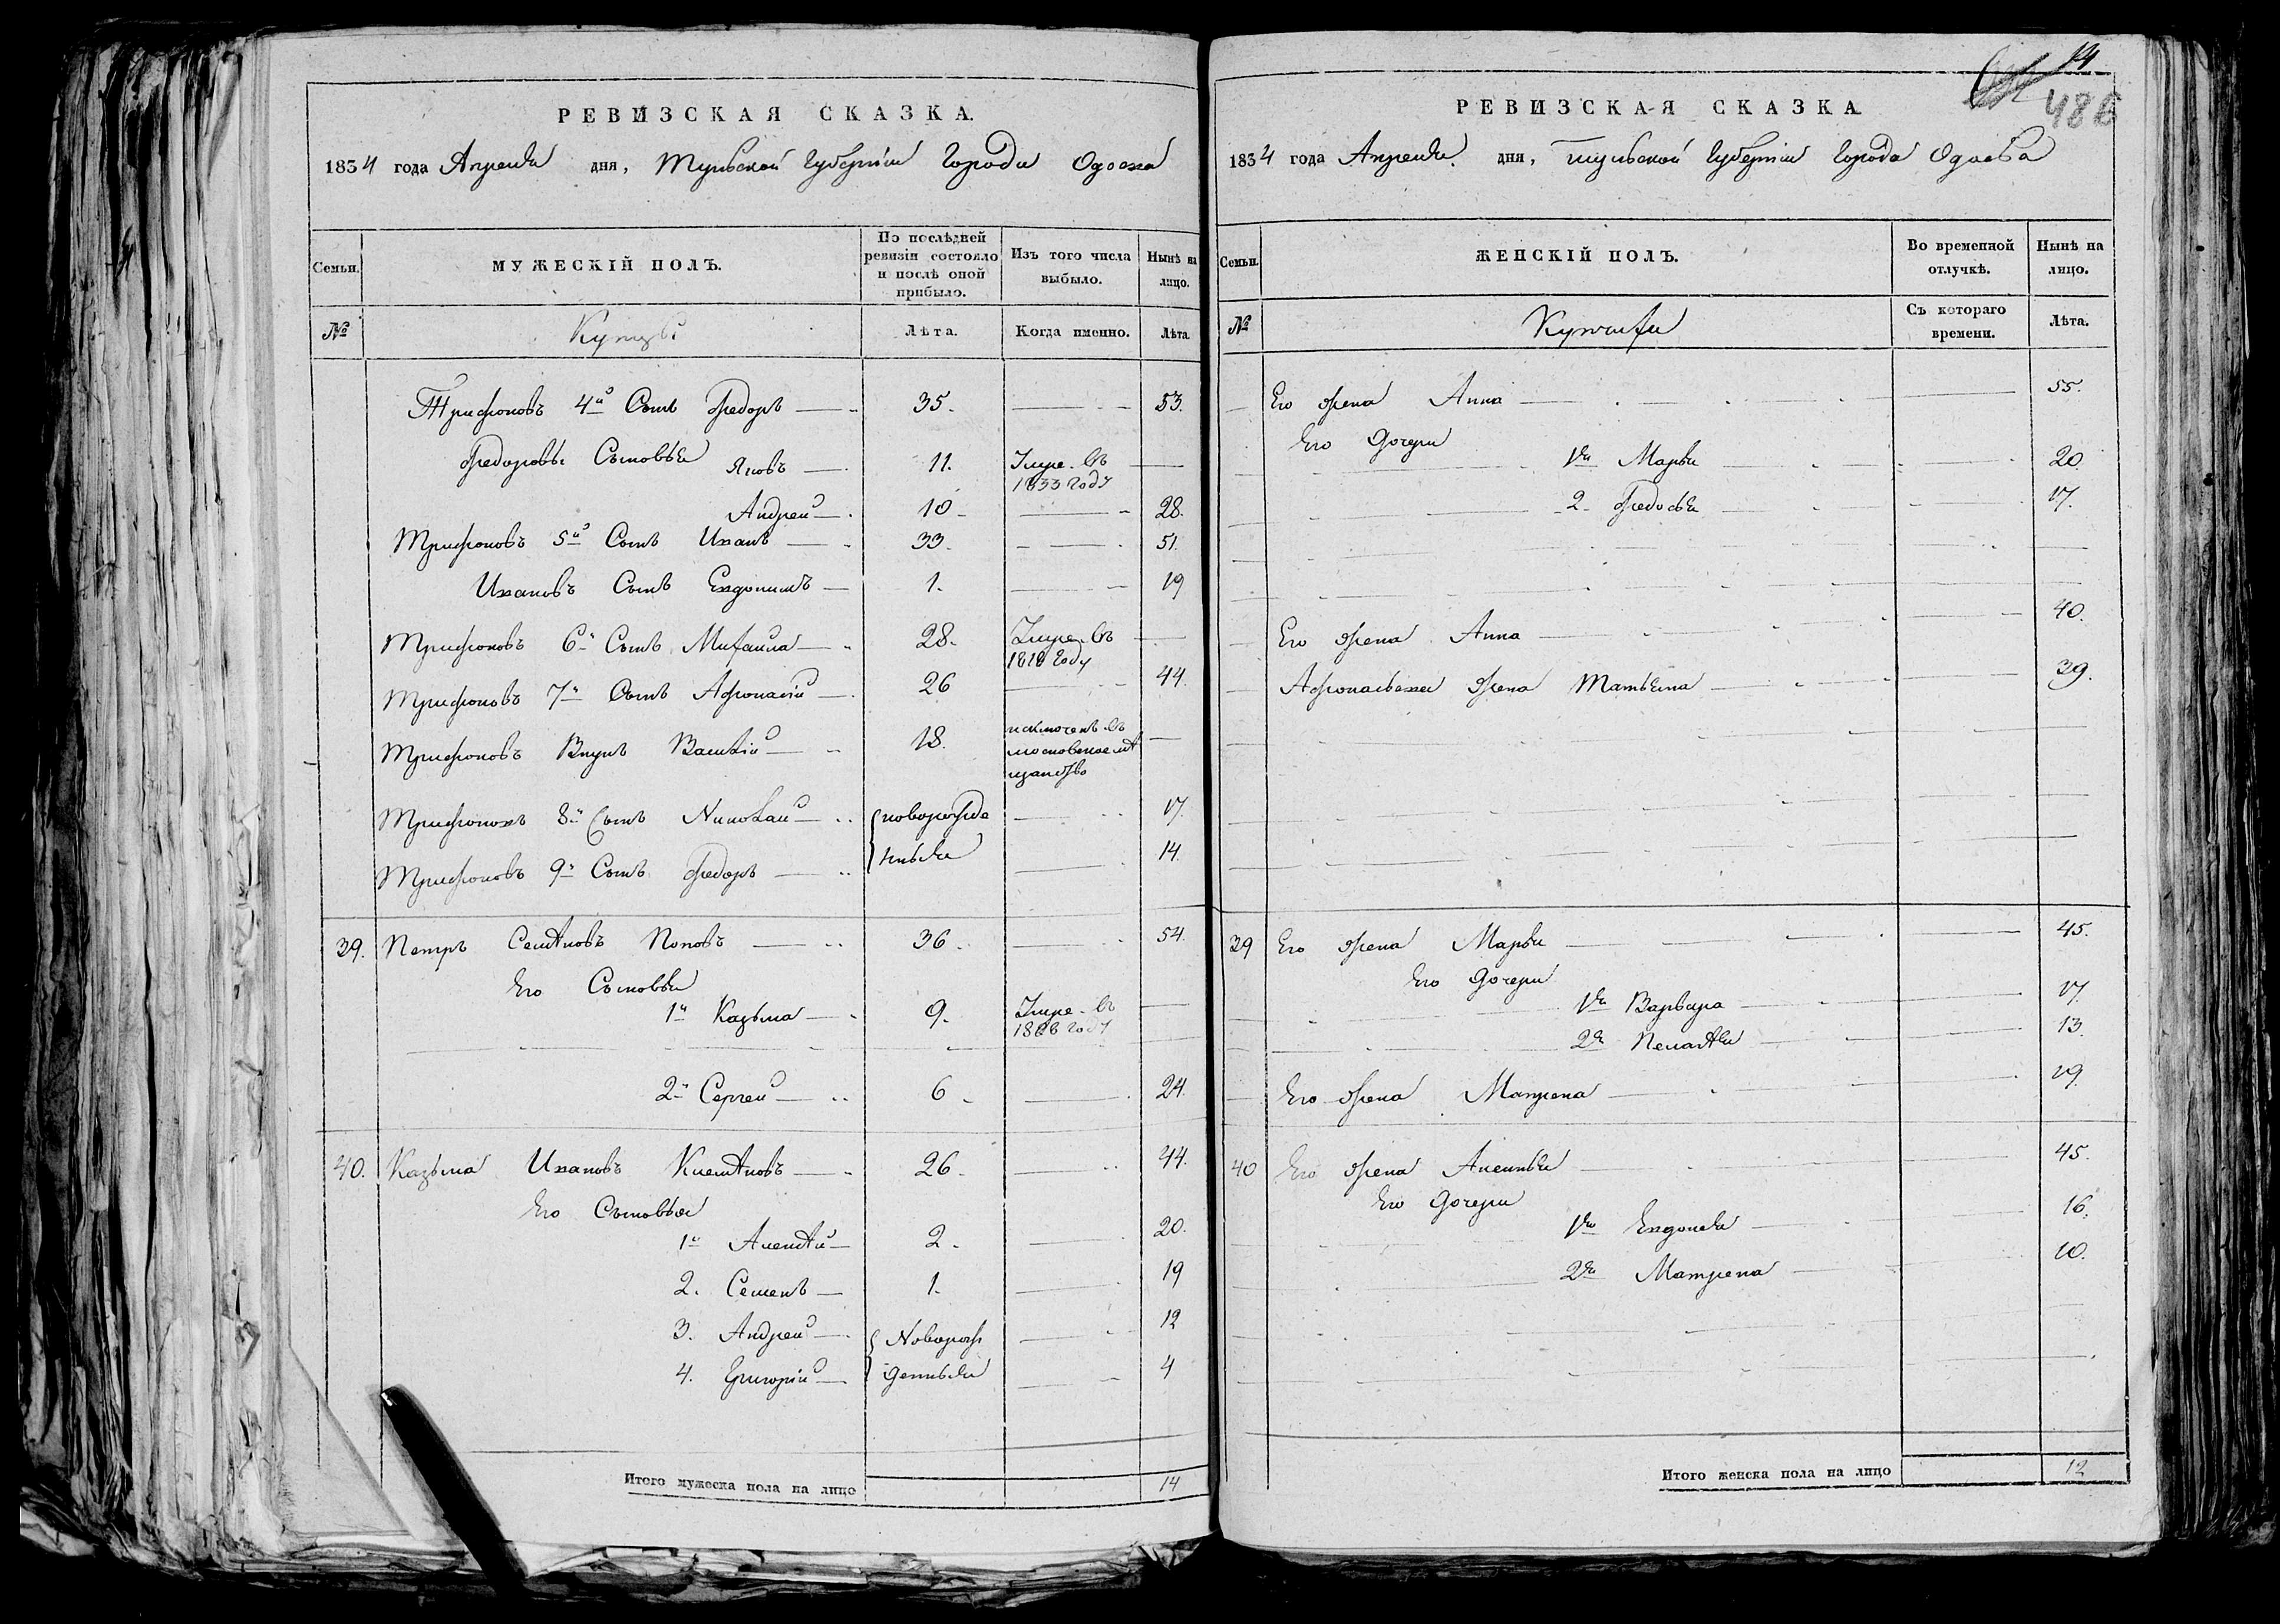 РЕВИЗСКАЯ СКАЗКА.
1834 года Апреля дня, Тульской Губернии Города Одоева
Семьи.
МУЖЕСКІЙ ПОЛЪ.
По послѣдней ревизіи состояло и послѣ оной прибыло.
Изъ того числа выбыло.
Нынѣ на лицо.
№
Купцы.
Лѣта.
Когда именно.
Лѣта.
Трифоновъ 4й Сынъ Федоръ 35. 53.
Федоровы Сыновья Яковъ 11. Умре. въ 1833 году
Андрей 10 28.
Трифоновъ 5й Сынъ Иванъ 33. 51.
Ивановъ Сынъ Евдокимъ 1. 19
Трифоновъ 6й Сынъ Михаила 28. Умре. въ 1818 году
Трифоновъ 7й Сынъ Афонасій 26 44.
Трифоновъ Внукъ Василій 18. исключенъ въ московское мѣщанство
Трифоновъ 8й Сынъ Николай новорожде 17.
Трифоновъ 9й Сынъ Федоръ нныя 14.
39. Петръ Семѣновъ Поповъ 36. 54.
Его Сыновья
1й Казьма 9. Умре. въ году
2й Сергей 6 24.
40. Казьма Ивановъ 26. 44.
Его Сыновья
1й Алексѣй 2. 20.
2. Семенъ 1. 19
3. Андрей Новорож 12
4. Григорій денныя 4
Итого мужеска пола на лицо 14
14
486
РЕВИЗСКАЯ СКАЗКА
1834 года Апреля. дня, Тульской Губернии Города Одоева
Семьи.
ЖЕНСКІЙ ПОЛЪ.
Во временной отлучкѣ.
Нынѣ на лицо.
№
Съ котораго времени.
Лѣта.
Его жена Анна 55.
Его дочери
1я Марья 20.
2 Федосья 17.
Его жена Анна 40.
Афонасьева жена Татьяна 39.
39 Его жена Марья 45.
Его дочери
1я Варвара 17.
2я Пелагѣя 13.
Его жена Матрена 19.
40 Его жена Аксинья 45.
Его дочери
1я Евдокея 16.
2я Матрена 10.
Итого женска пола на лицо 12